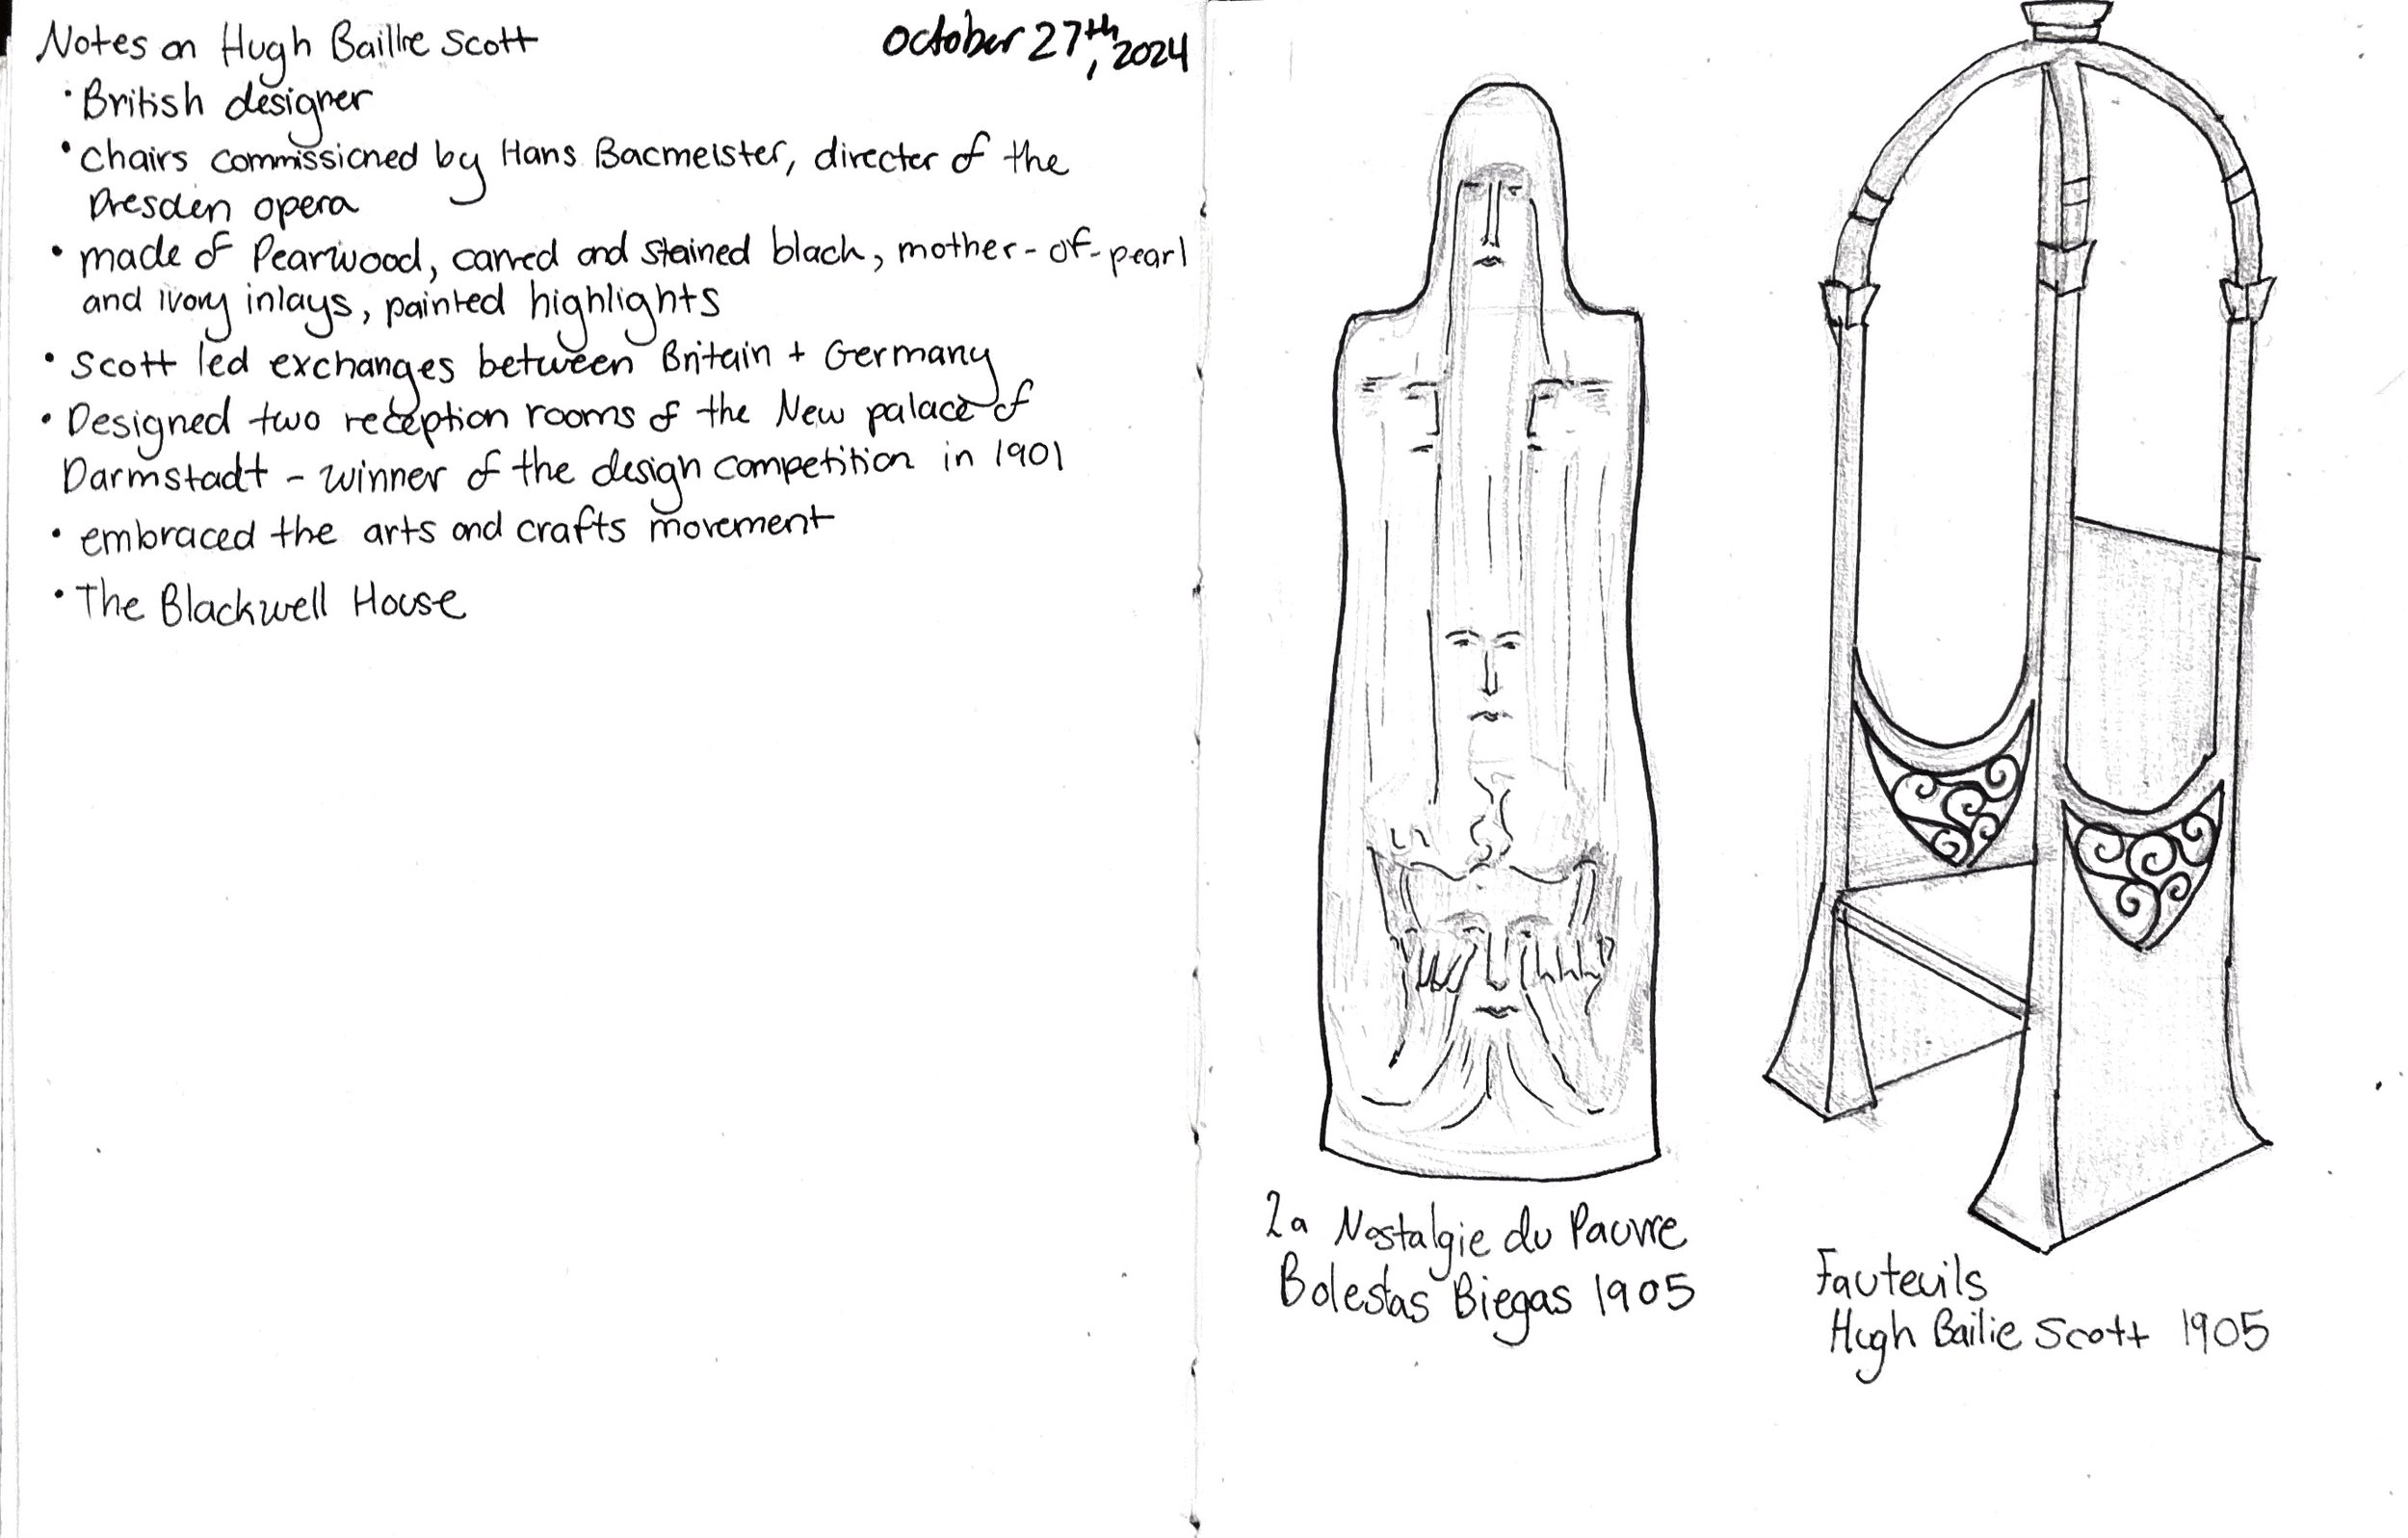 Notes on Hugh Baillie Scott
October 27th, 2024
• British designer
• chairs commissioned by Hans Bacmeister, director of the
Dresden opera
• made of Pearwood, carved and stained black, mother-of-pearl
and ivory inlays, painted highlights
• Scott led exchanges between Britain + Germany
• Designed two reception rooms of the New palace of
Darmstadt - winner of the design competition in 1901
• embraced the arts and crafts movement
• The Blackwell House
La Nostalgie du Pauvre
Boleslas Biegas 1905
Fauteuils
Hugh Bailie Scott 1905